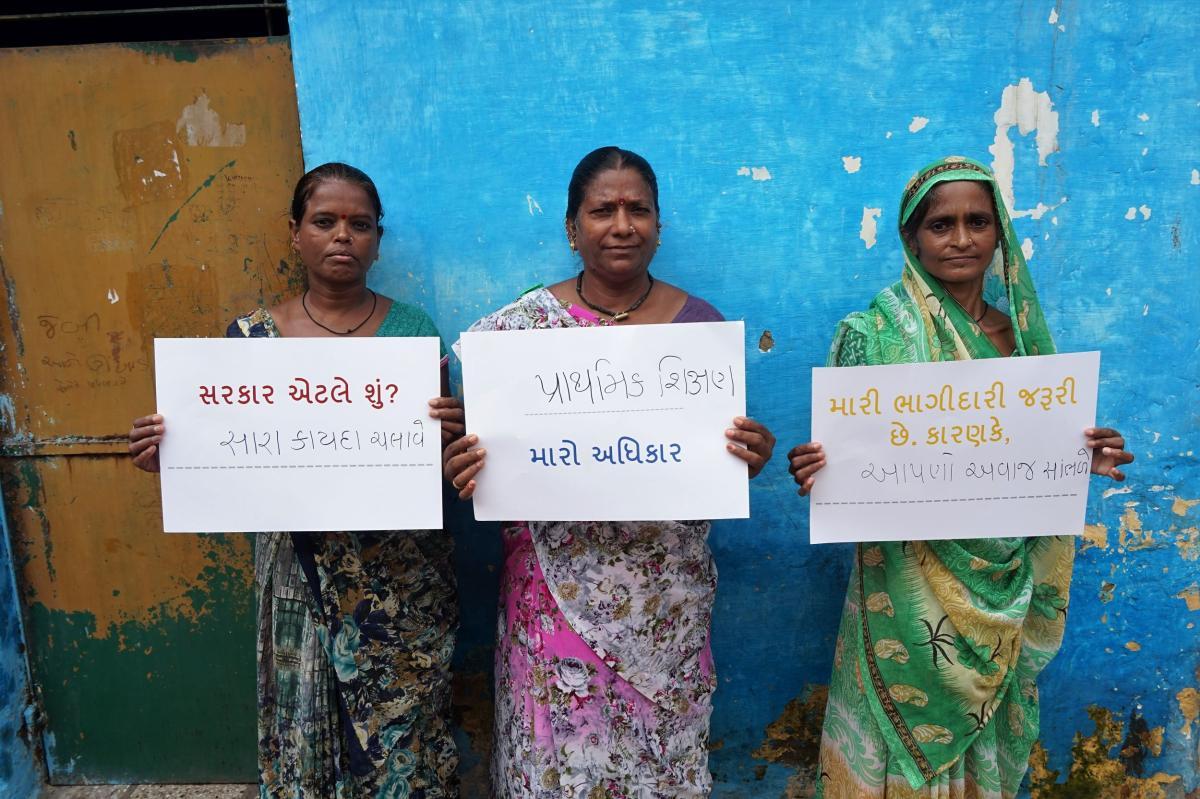 સરકાર એટલે શું?
સારા કાયદા ચલાવે
પ્રાથમિક શિક્ષણ
મારો અધિકાર
મારી ભાગીદારી જરૂરી
છે. કારણકે,
આપણો અવાજ સાંભળે